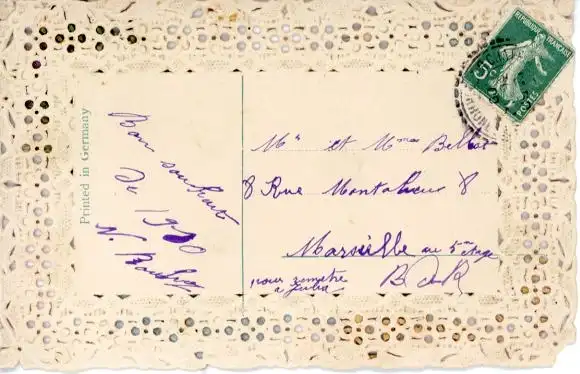 Printed in Germany
Bon souhait
de 1910
N.
Mr et Mme
8 Rue 8
Marseille au 5me étage
pour remettre
à Julia
B d R
REPUBLIQUE FRANÇAISE
5c
POSTES